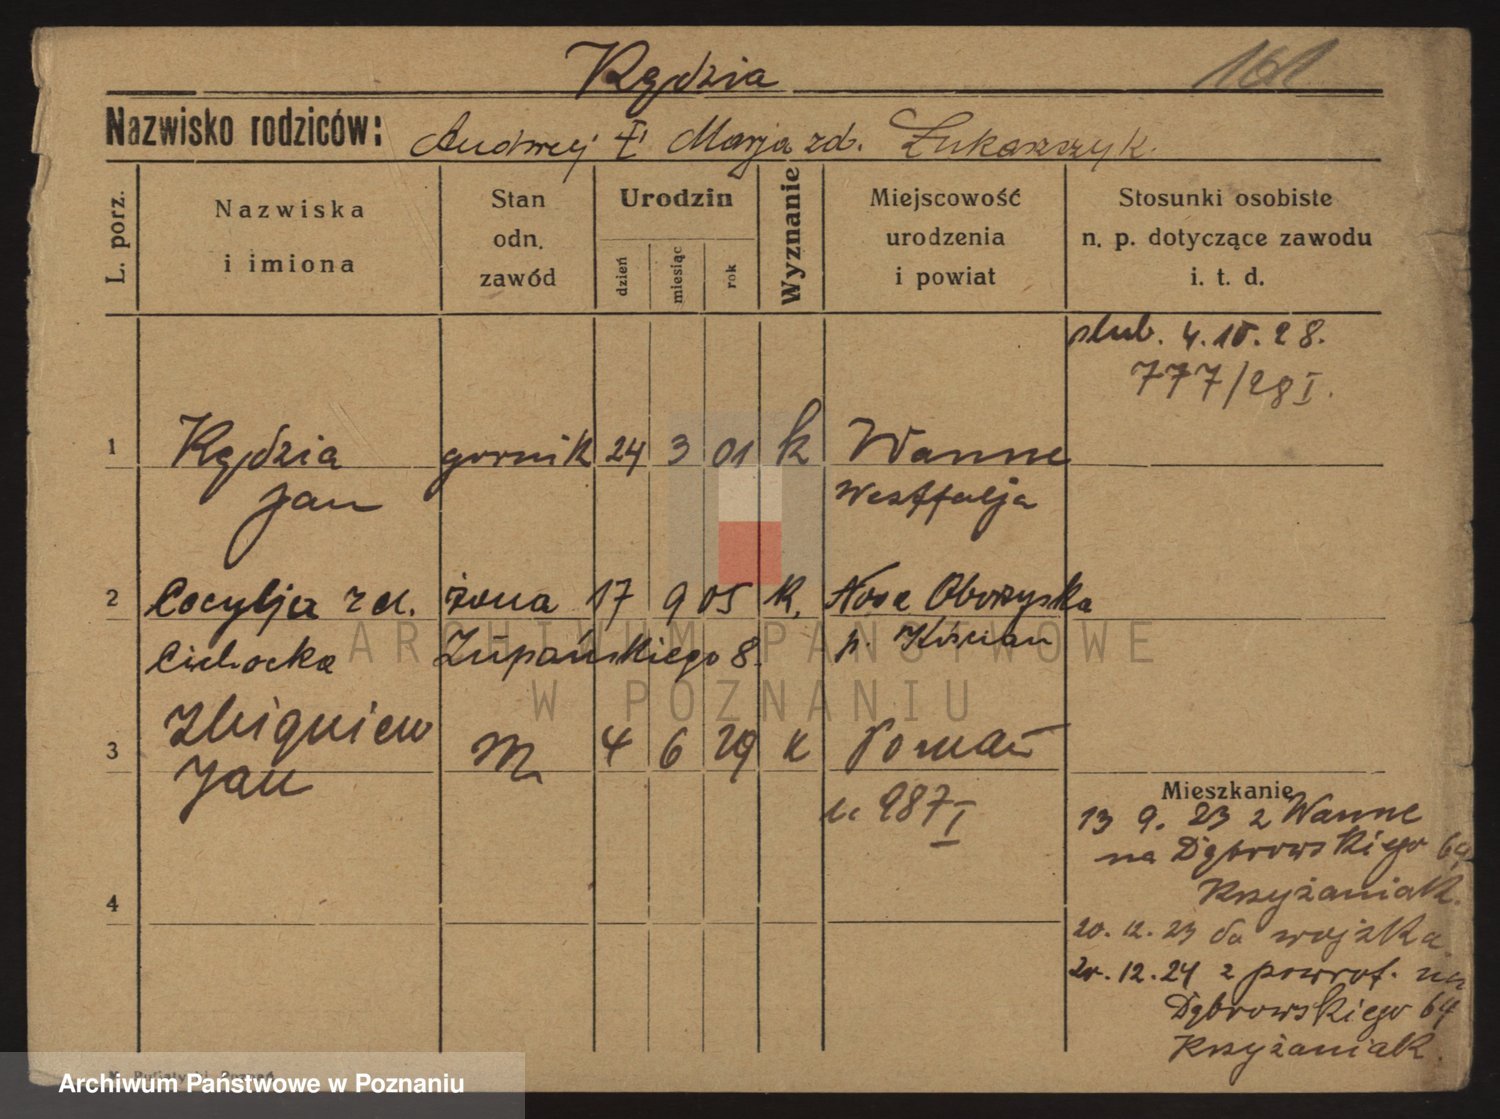 Kędzia
161
Nazwisko rodziców: Andrzej Marja zd. Łukaszczyk.
L. porz.
Nazwiska
i imiona
Stan
odn.
zawód
Urodzin
dzień
miesiąc
rok
Wyznanie
Miejscowość
urodzenia
i powiat
Stosunki osobiste
n. p. dotyczące zawodu
i. t. d.
ślub. 4.10.28.
777/28 I.
1 Kędzia gornik 24 3 01 k Wanne
Jan Westfalja
2 Cecylja zd. żona 17 9 05 k. Nowe Oborzyska
Cichocka Żupańskiego 8. p. Kościan
Zbigniew
3 Jan m 4 6 29 k Poznań
987 I
Mieszkanie
13 9. 23 z Wanne
na Dąbrowskiego 64
Krzyżaniak.
4
20.12.23 do wojska
20.12.24 z powrot. na
Dąbrowskiego 64
Krzyżaniak.
ARCHIWUM PAŃSTWOWE
W POZNANIU
Archiwum Państwowe w Poznaniu